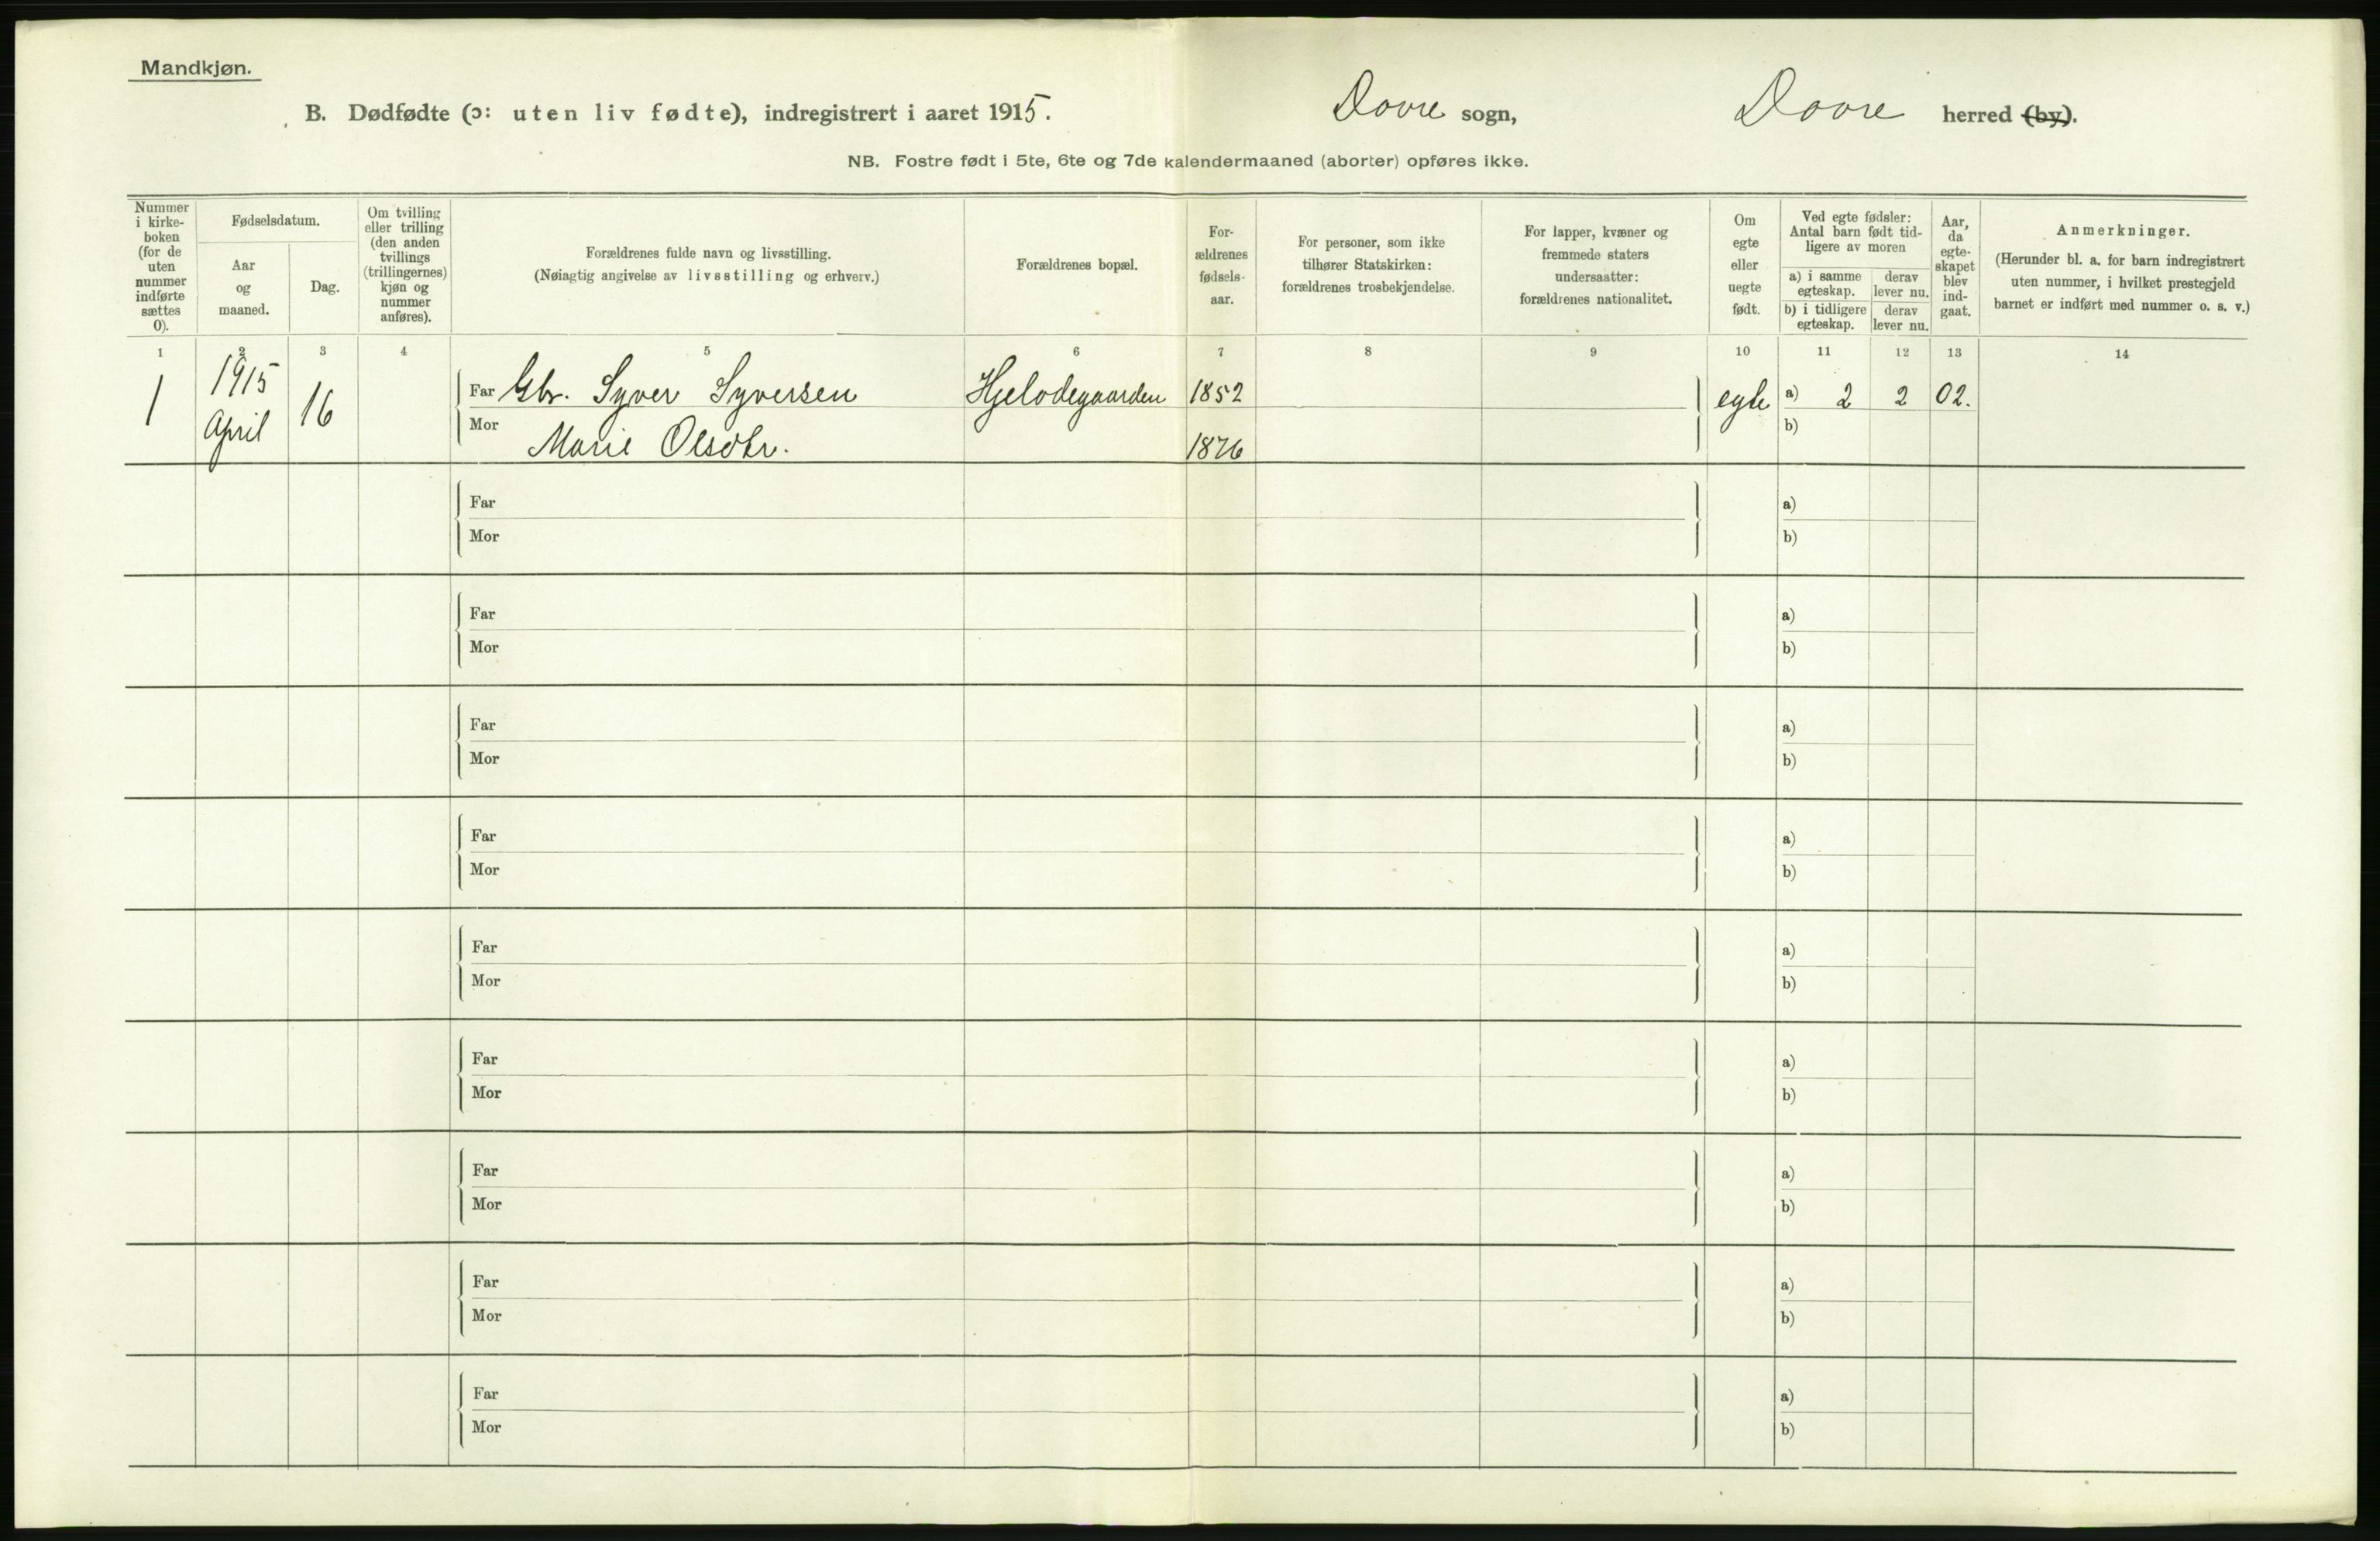 Mandkjøn.
B. Dødfødte (ɔ: uten liv fødte), indregistrert i aaret 1915. Dovre sogn, Dovre herred (by).
NB. Fostre født i 5te, 6te og 7de kalendermaaned (aborter) opføres ikke.
Nummer
i kirke-
boken
(for de
uten
nummer
indførte
sættes
0).
Fødselsdatum.
Aar
og
maaned.
Dag.
Om tvilling
eller trilling
(den anden
tvillings
(trillingernes)
kjøn og
nummer
anføres).
Forældrenes fulde navn og livsstilling.
(Nøiagtig angivelse av livsstilling og erhverv.)
Forældrenes bopæl.
For-
ældrenes
fødsels-
aar.
For personer, som ikke
tilhører Statskirken:
forældrenes trosbekjendelse.
For lapper, kvæner og
fremmede staters
undersaatter:
forældrenes nationalitet.
Om
egte
eller
uegte
født.
Ved egte fødsler:
Antal barn født tid-
ligere av moren
a) i samme
egteskap.
derav
lever nu.
b) i tidligere
egteskap.
derav
lever nu.
Aar,
da
egte-
skapet
blev
ind-
gaat.
Anmerkninger.
(Herunder bl. a. for barn indregistrert
uten nummer, i hvilket prestegjeld
barnet er indført med nummer o. s. v.)
1 2 3 4 5 6 7 8 9 10 11 12 13 14
1 1915 April 16
Far Gbr. Syver Syversen 1852 egte a) 2 2 02.
Mor Marie Olsdtr. 1876 b)
Far a)
Mor b)
Far a)
Mor b)
Far a)
Mor b)
Far a)
Mor b)
Far a)
Mor b)
Far a)
Mor b)
Far a)
Mor b)
Far a)
Mor b)
Far a)
Mor b)